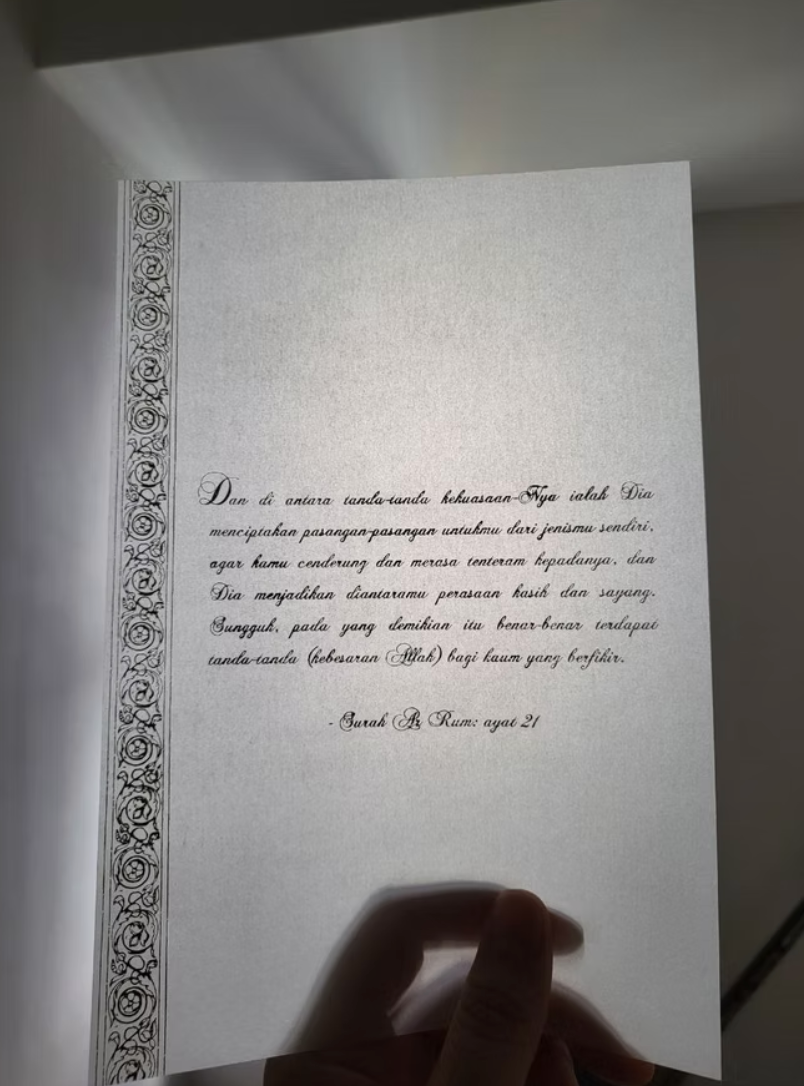 Dan di antara tanda-tanda kekuasaan-Nya ialah Dia
menciptakan pasangan-pasangan untukmu dari jenismu sendiri,
agar kamu cenderung dan merasa tenteram kepadanya, dan
Dia menjadikan diantaramu perasaan kasih dan sayang.
Sungguh, pada yang demikian itu benar-benar terdapat
tanda-tanda (kebesaran Allah) bagi kaum yang berfikir.
- Surah Ar Rum: ayat 21